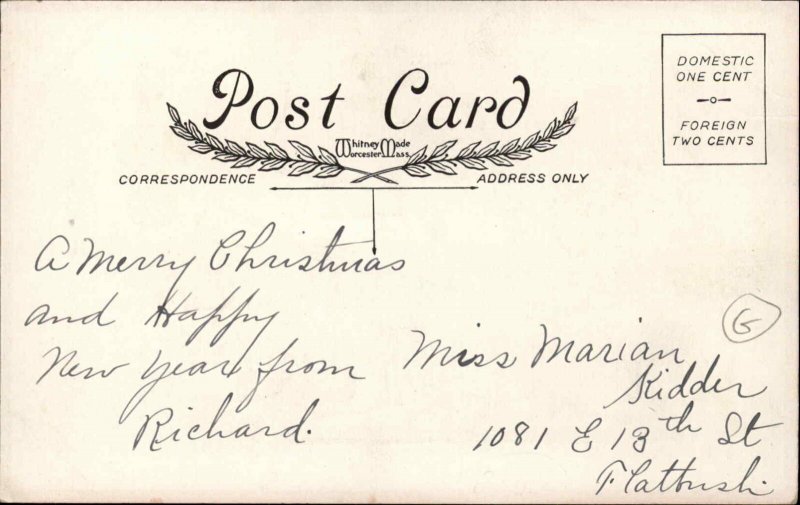 Post Card
Whitney Made
Worcester Mass.
CORRESPONDENCE
ADDRESS ONLY
DOMESTIC
ONE CENT
FOREIGN
TWO CENTS
A Merry Christmas
and Happy
New Year from
Richard.
G
Miss Marian
Kidder
1081 E 13th St
Flatbush